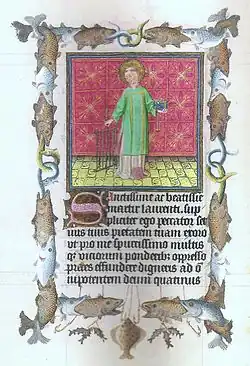 Sanctissime ac beatissi
martir laurenti, sup
pliciter ego peccator ser
vus tuus pietatem tuam exoro
ut pro me spurcissimo multis
viciorum ponderib oppresso
preces effundere digneris ad o
nipotentem deum quatinus